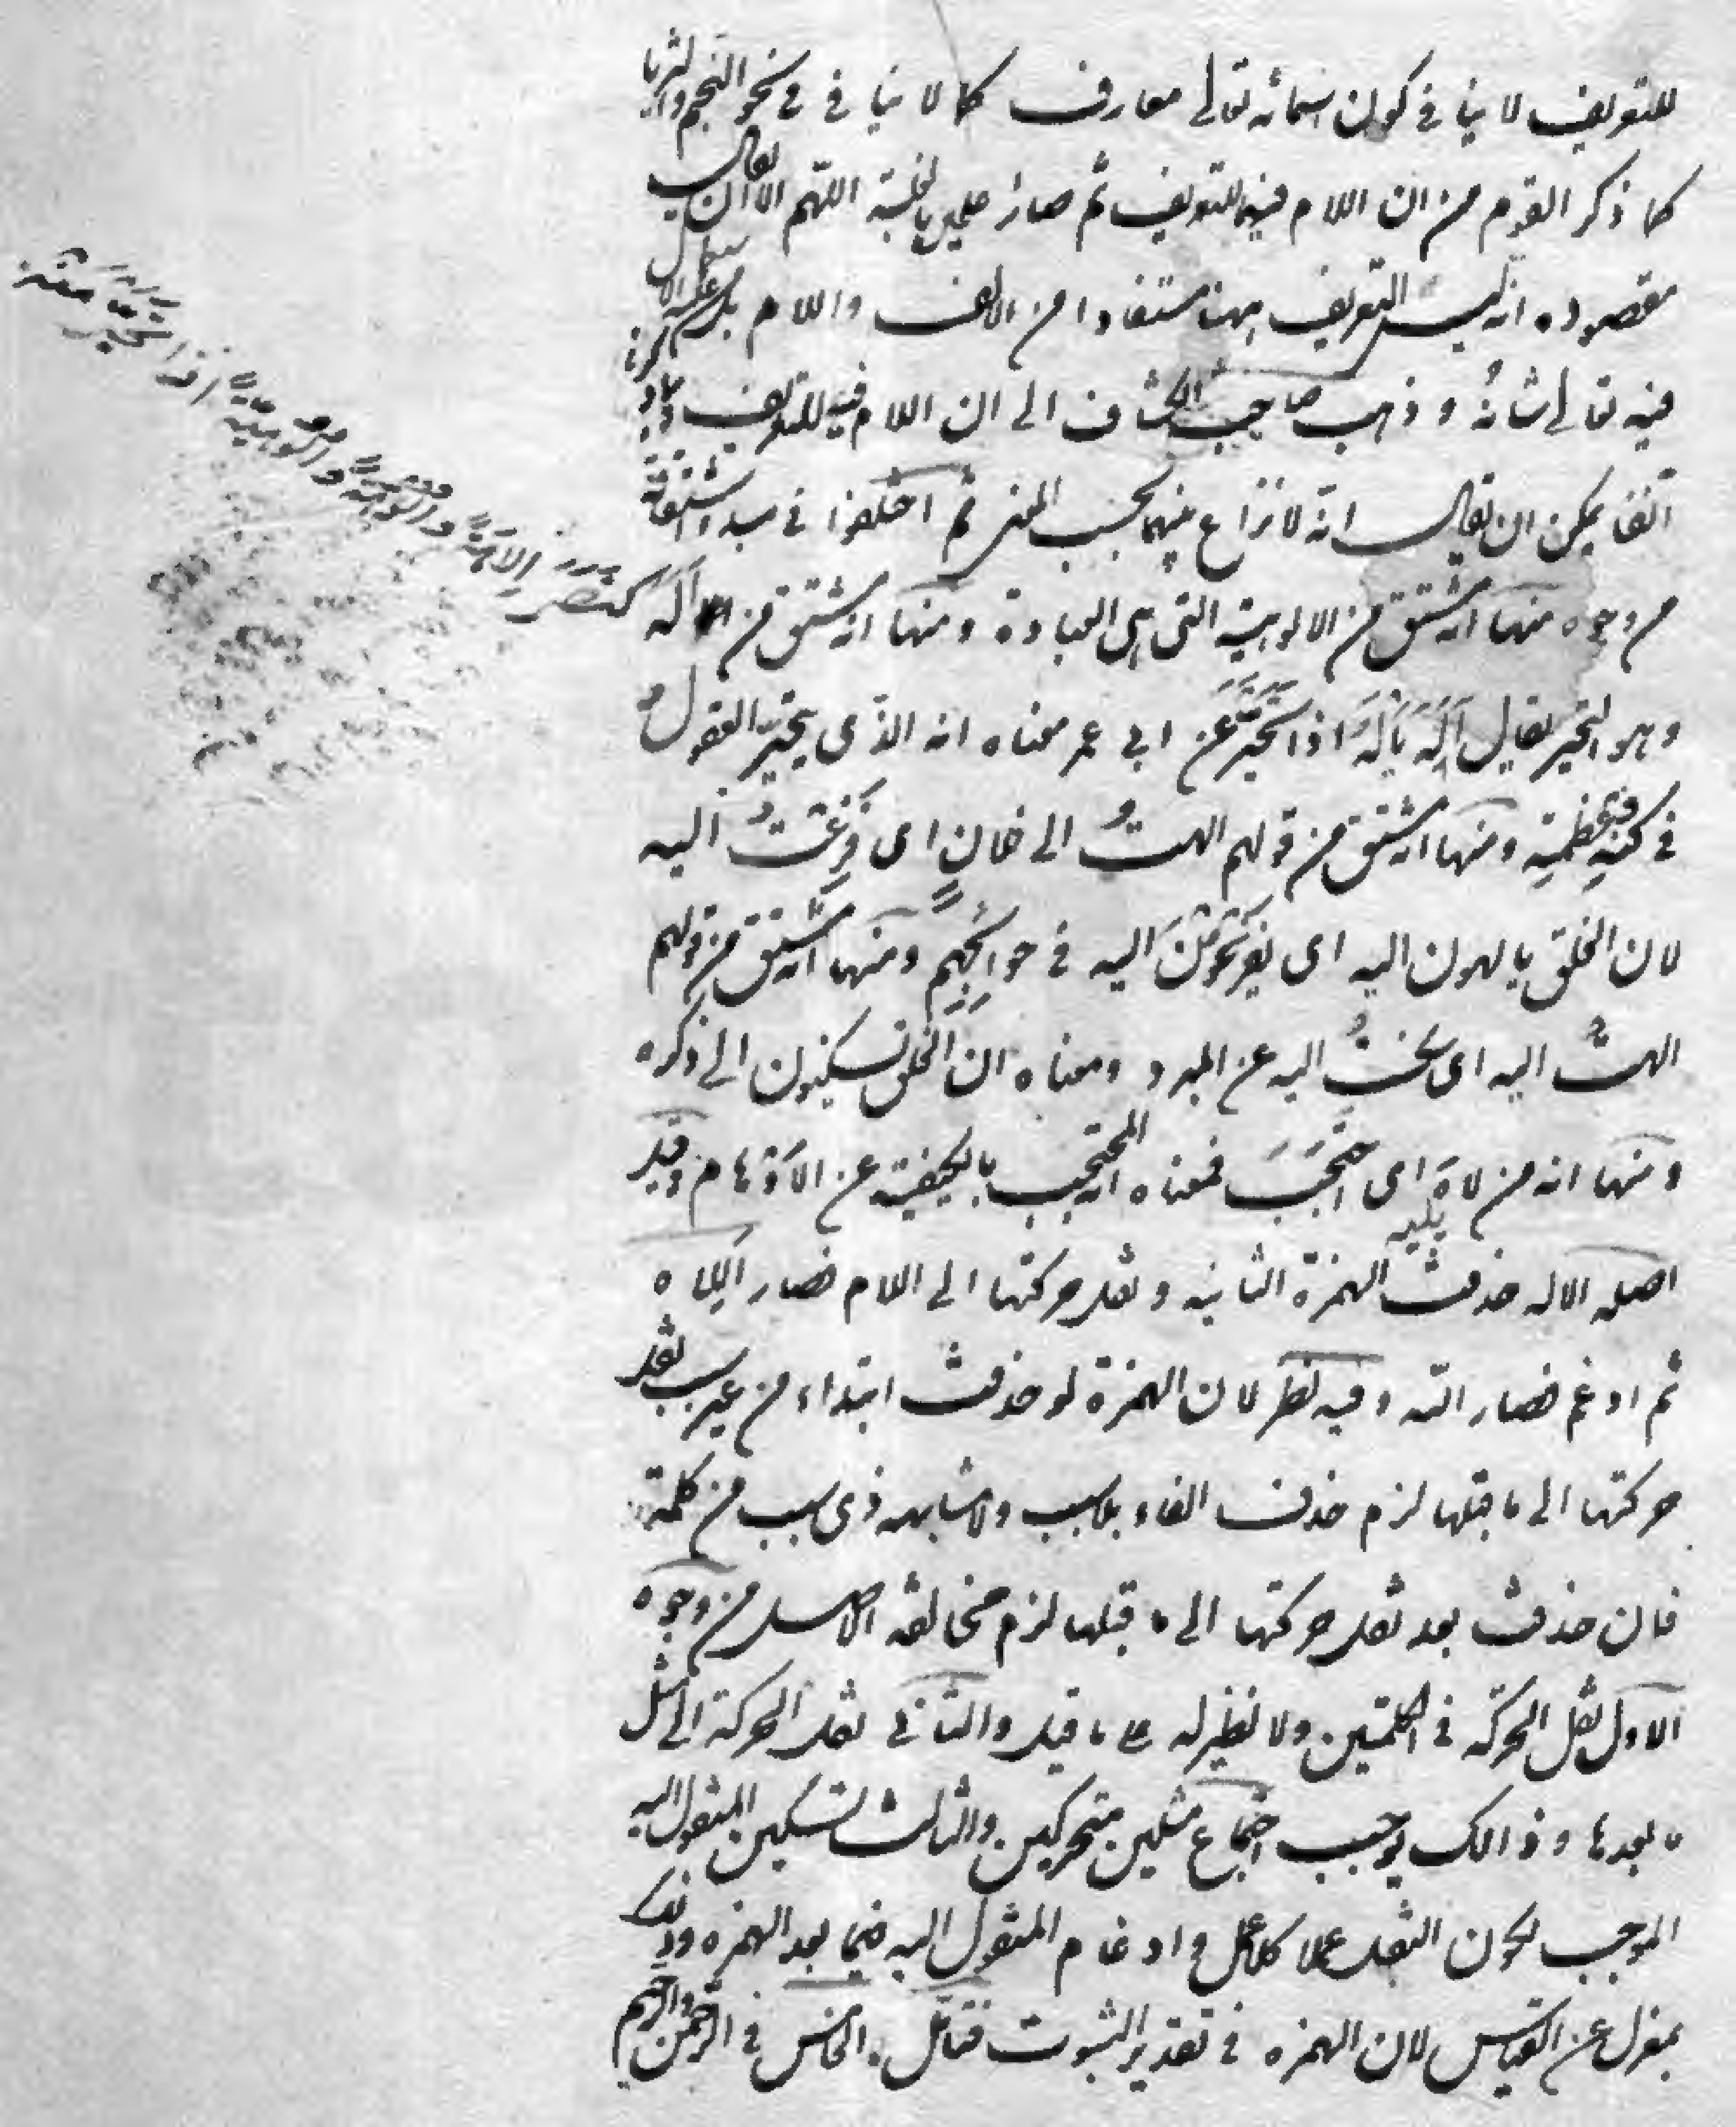 للتعريف لا ينافي كون اسمائه تعالى معارف كما لا ينافي في نحو النجم والثريا
كما ذكر القوم من ان اللام فيهما للتعريف ثم صارا علمين بالغلبة اللهم الا ان يقال
مقصوده انه ليس التعريف ههنا مستفادا من الالف واللام بل
فيه تعالى شانه و ذهب صاحب الكشاف الى ان اللام فيه للتعريف
آنفا يمكن ان يقال انه لا نزاع بينهما بحسب المعنى ثم اختلفوا في مبدء اشتقاقه
من وجوه منها انه مشتق من الالوهية التي هي العبادة ومنها انه مشتق من اَلَه
وهو التحير يقال اَلِهَ يَأْلَهُ اذا تحيَّر عن ابي عمر معناه انه الذي يتحير العقول
في كنه عظمته ومنها انه مشتق من قولهم الهتُ الى فلانٍ اى فزعتُ اليه
لان الخلق يالهون اليه اى يفزعون اليه في حوائجهم ومنها انه مشتق من قولهم
الهتُ اليه اى سكنتُ اليه عن المبرد ومعناه ان الخلق يسكنون الى ذكره
ومنها انه من لاهَ يليه اى احتجَبَ فمعناه انه المحتجب بالكيفية عن الاَوْهام وقيل
اصله الاله حذفت الهمزة الثانيه و نقل حركتها الى اللام فصار اَلِلاه
ثم ادغم فصار الله وفيه نظر لان الهمزة لو حذفت ابتداء من غير سبب نقل
حركتها الى ما قبلها لزم حذف الفاء بلا سبب ولا مشابهه ذى سبب من كلمة
فان حذفت بعد نقل حركتها الى ما قبلها لزم مخالفه الاصل من وجوه
الاول نقل الحركة في الكلمتين ولا نظير له على ما قيل والثاني نقل الحركة الى مثل
ما بعدها و ذالك يوجب اجتماع مثلين متحركين والثالث تسكين المنقول اليه
الموجب لكون النقل عملا كلا عمل و ادغام المنقول اليه فيما بعد الهمزه وذلك
بمعزل عن القياس لان الهمزه في تقدير الثبوت فتأمل الخامس في الرحمن والرحيم
كنصَرَ اِلاهةً والُوهةً والوهيةً اذا تحيَّر